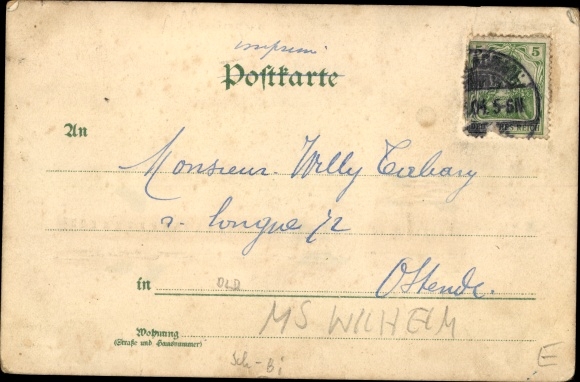 imprimé
Postkarte
5
5-6N
An
Monsieur Willy
r. longue 72
in OLD Ostende.
MS WILHELM
Wohnung
(Straße und Hausnummer)
Sch-Bi
E